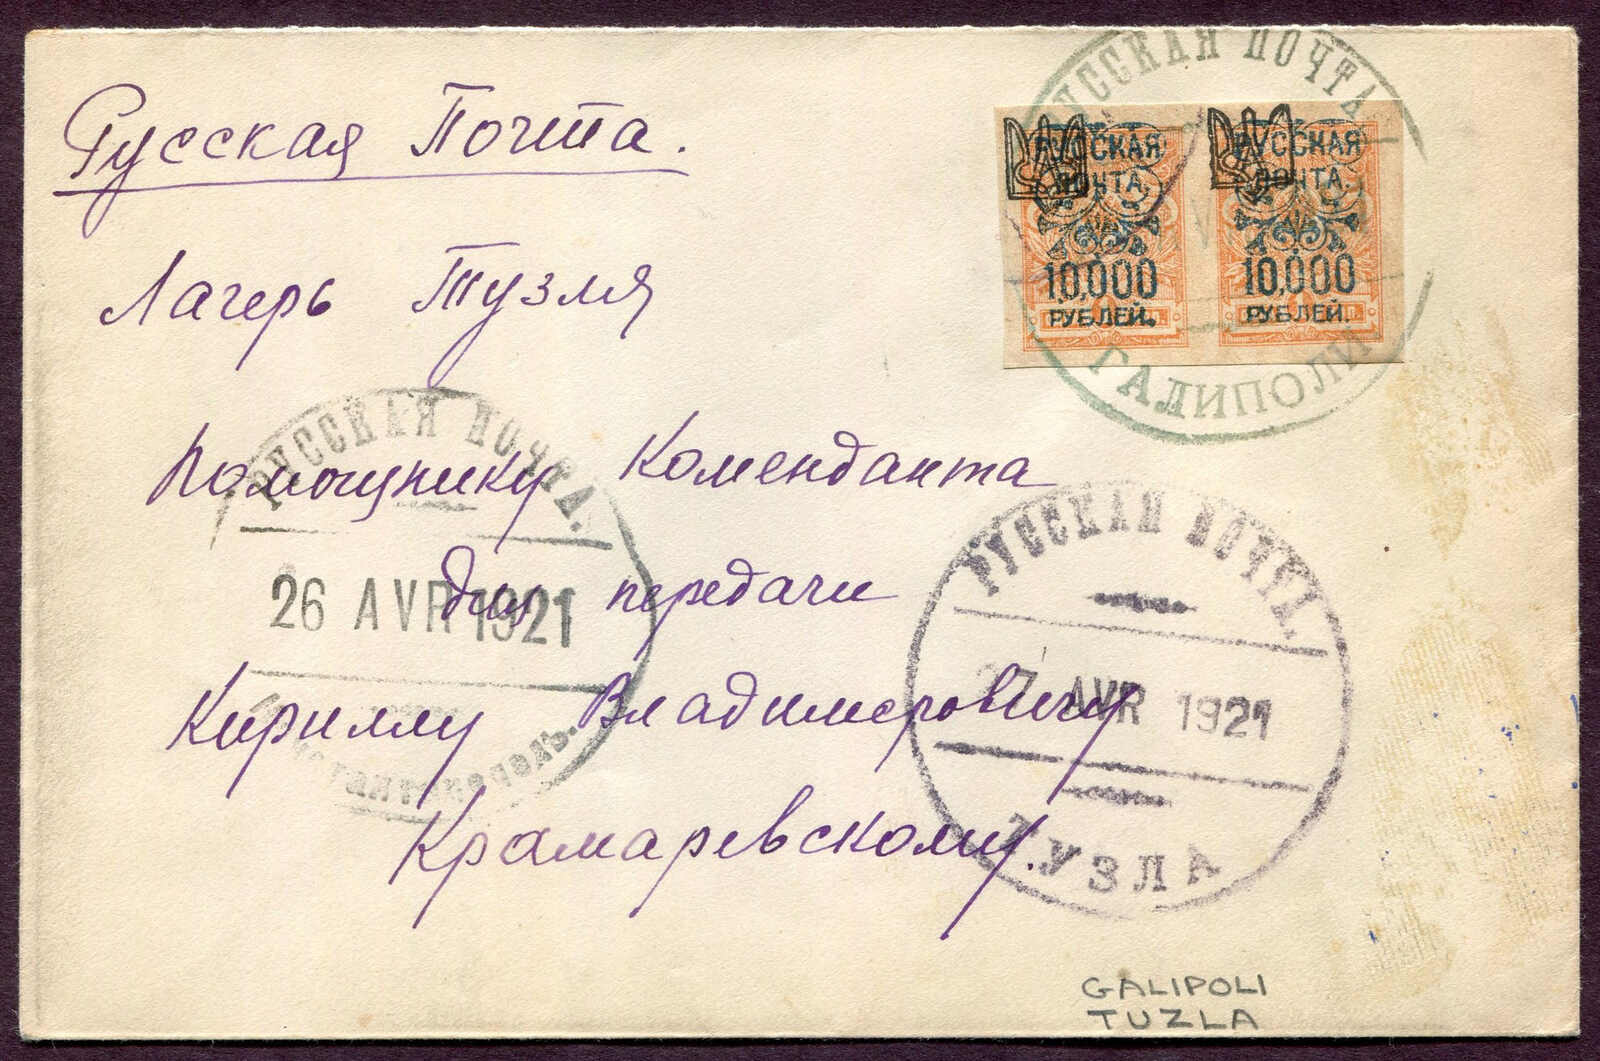 Русская Почта.
РУССКАЯ ПОЧТА
РУССКАЯ
ПОЧТА.
10,000
РУБЛЕЙ.
РУССКАЯ
ПОЧТА.
10,000
РУБЛЕЙ.
ГАЛИПОЛИ
Лагерь Тузля
РУССКАЯ ПОЧТА.
Помощнику Коменданта
РУССКАЯ ПОЧТА.
26 AVR 1921
для передачи
27 AVR 1921
Кириллу Владимировичу
Крамаревскому.
ТУЗЛА
GALIPOLI
TUZLA